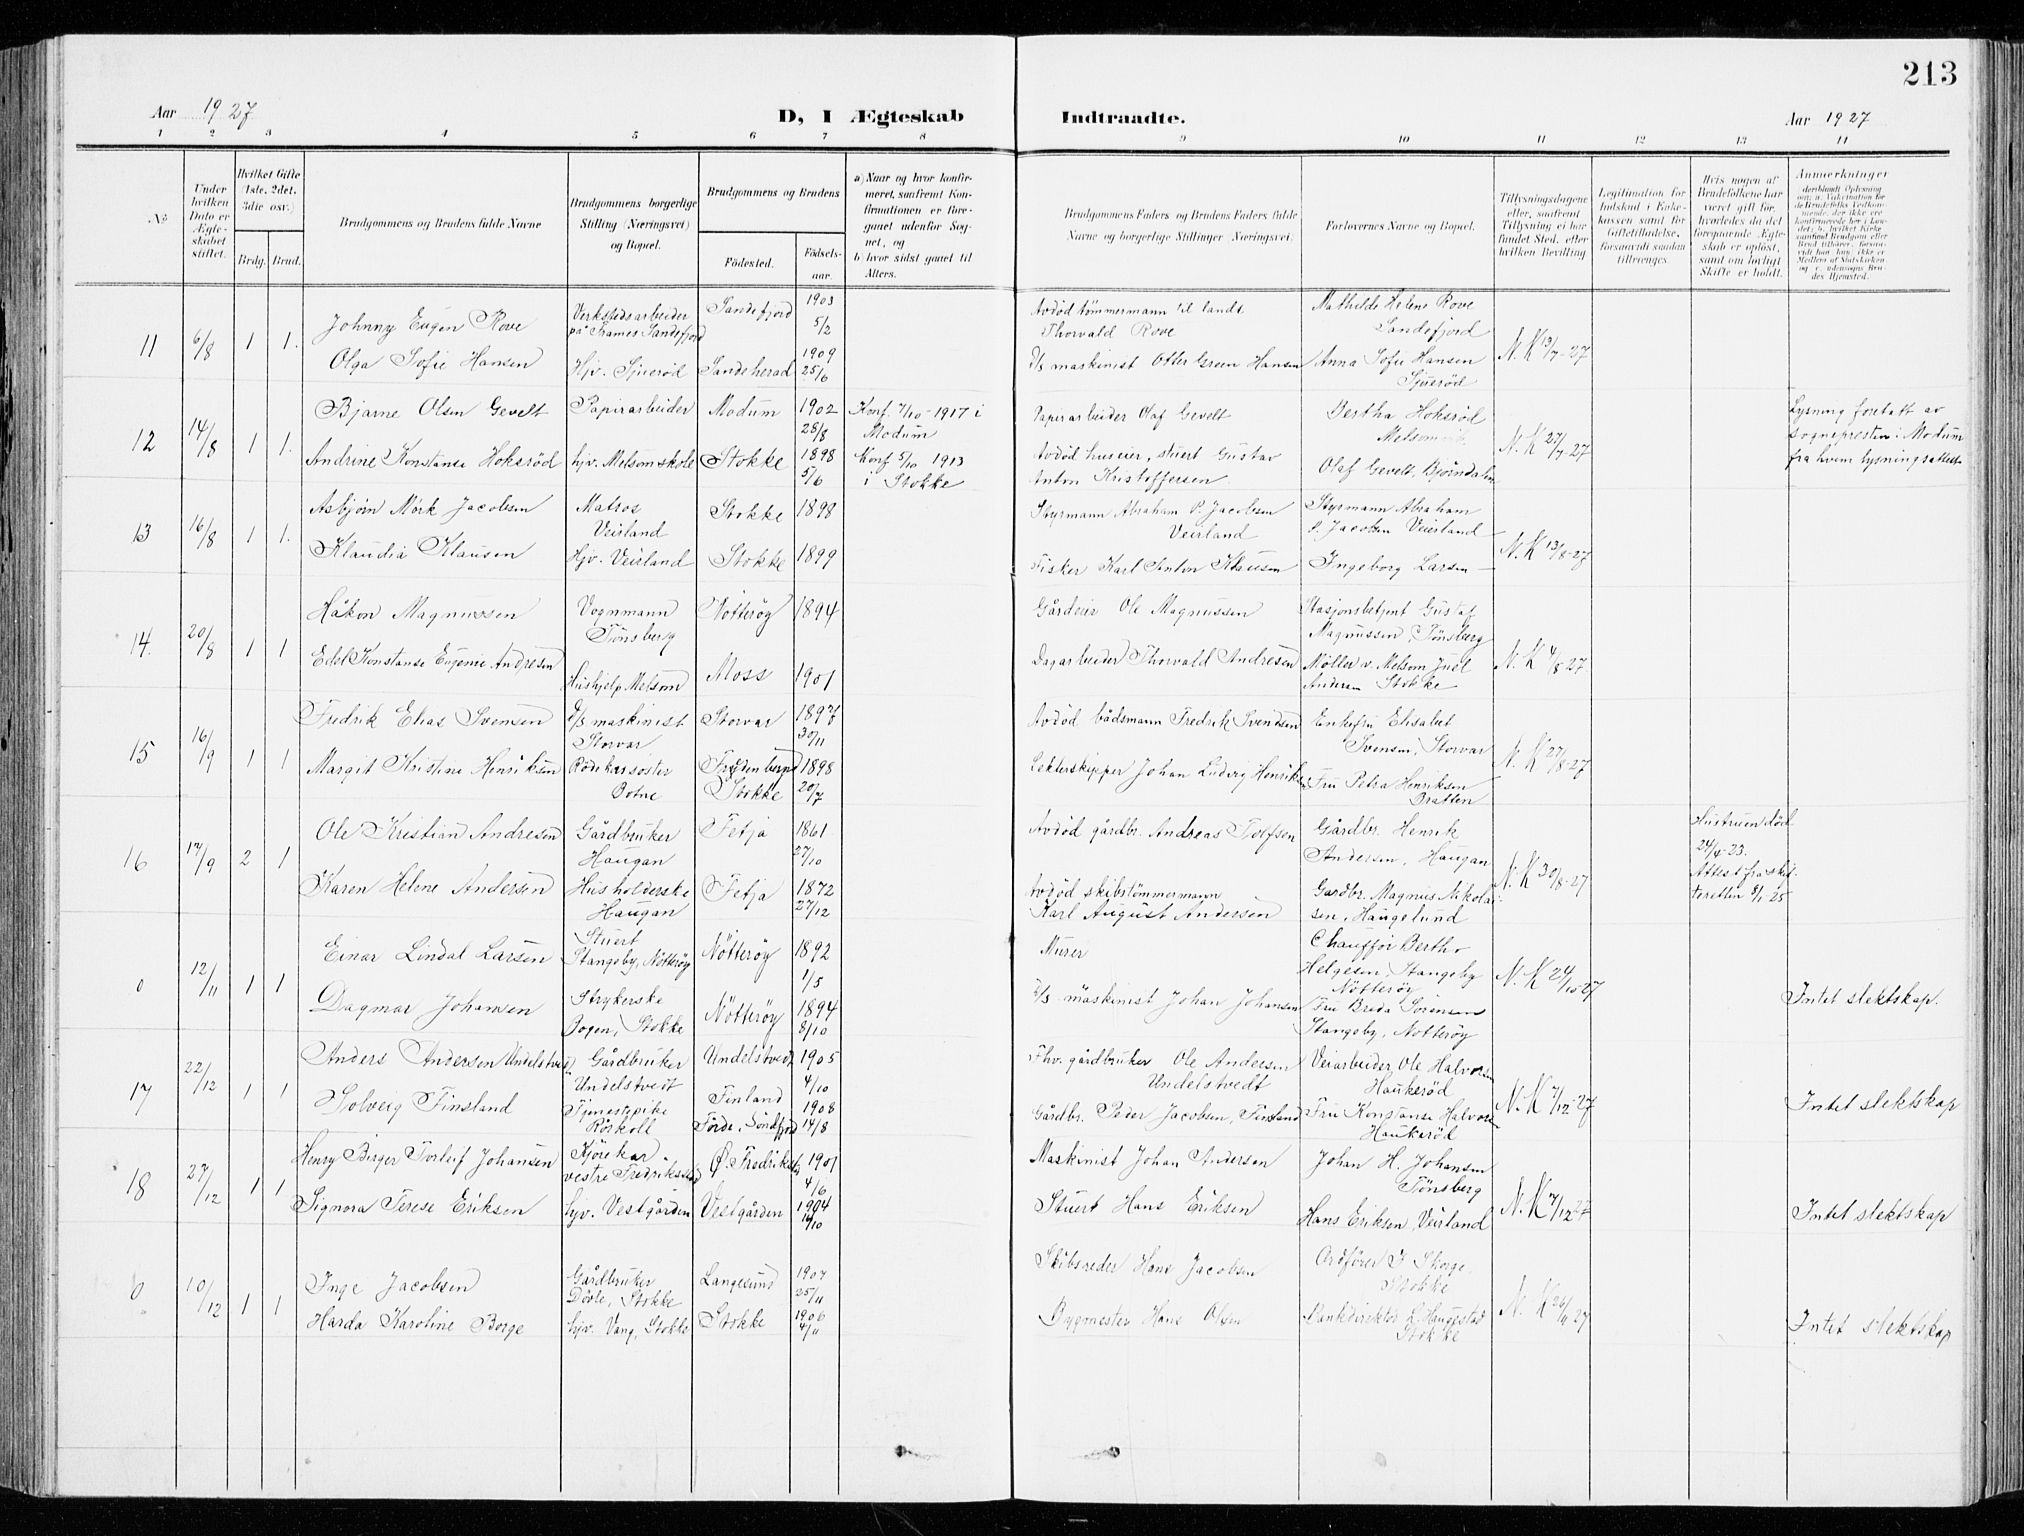 213
Aar 1927
D, I Ægteskab
Indtraadte.
Aar 1927
1 2 3 4 5 6 7 8 9 10 11 12 13 14
No
Under hvilken Dato er Ægteskabet stiftet.
Hvilket Gifte (1ste, 2det, 3die osv.)
Brdg. Brud.
Brudgommens og Brudens fulde Navne
Brudgommens borgerlige Stilling (Næringsvei) og Bopæl.
Brudgommens og Brudens
Fødested.
Fødselsaar.
a) Naar og hvor konfirmeret, saafremt Konfirmationen er foregaaet udenfor Sognet, og
b) hvor sidst gaaet til Alters.
Brudgommens Faders og Brudens Faders fulde Navne og borgerlige Stillinger (Næringsvei)
Forlovernes Navne og Bopæl.
Tillysningsdagene eller, saafremt Tillysning ei har fundet Sted, efter hvilken Bevilling
Legitimation for Indskud i Enkekassen samt for Giftetilladelse, forsaavidt saadan tiltrænges
Hvis nogen af Brudefolkene har været gift før, hvorledes da det foregaaende Ægteskab er opløst, samt om lovligt Skifte er holdt.
Anmerkninger
11 6/8 1 1.
Johnny Eugen Rove
Verkstedsarbeider på Framnes Sandefjord
Sandefjord
1903 5/2
Avdød tømmermann til lands Thorvald Rove
Mathilde Helene Rove Sandefjord
N. K 13/7-27
Olga Sofie Hansen
Hjv. Sjuerød
Sandeherad
1909 25/6
D/S maskinist Otter Green Hansen
Anna Sofie Hansen Sjuerød
12 14/8 1 1.
Bjarne Olsen Gevelt
Papirarbeider
Modum
1902 28/8
Konf. 7/10-1917 i Modum
Papirarbeider Olaf Gevelt
Bertha Hoksrød Melsomvik
N. K 27/7-27
Lysning foretatt av sognepresten i Modum fra hvem lysningsattest
Andrine Konstanse Hoksrød
hjv. Melsomskole
Stokke
1898 5/6
Konf 5/10 1913 i Stokke
Avdød huseier, stuert Gustav Anton Kristoffersen
Olaf Gevelt, Bjørndalen
13 16/8 1 1.
Asbjørn Mørk Jacobsen
Matros Veirland
Stokke
1898
Styrmann Abraham P. Jacobsen Veirland
Styrmann Abraham P. Jacobsen Veierland
N. K 13/8-27
Klaudia Klausen
Hjv. Veirland
Stokke
1899
Fisker Karl Anton Klausen
Ingeborg Larsen
14. 20/8 1 1
Håkon Magnussen
Vognmann Tønsberg
Nøtterøy
1894
Gårdeier Ole Magnussen
Stasjonsbetjent Gustaf Magnussen, Tønsberg
N. K 4/8-27.
Edel Konstanse Eugenie Andresen
Hushjelp Melsom
Moss
1901
Dagarbeider Thorvald Andresen
Møller v. Melsom Juel Andersen Stokke
15 16/9 1 1
Fredrik Elias Svensen
D/S maskinist Storvar
Storvar
1897 30/11
Avdød bådsmann Fredrik Svendsen
Enkefru Elisabet Svensen, Storvar
N. K 27/8-27
Margit Kristine Henriksen
Rødekorssøster Botne
Stokke
1898 20/7
Lekterskipper Johan Ludvig Henriksen
Fru Petra Henriksen Bratten
16 17/9 2 1
Ole Kristian Andresen
Gårdbruker Haugan
Fetja
1861 27/10
Avdød gårdbr. Andreas Tolfsen
Gårdbr. Henrik Andersen, Haugan
N. K 30/8-27
Hustruen død 24/4-23. Attest fra skifteretten 8/1 25
Karen Helene Andersen
Husholderske Haugan
Fetja
1872 27/12
Avdød skibstømmermann Karl August Andersen
Gardbr. Magnus Nikolaisen, Haugelund
0 12/11 1 1
Einar Lindal Larsen
Stuert Stangeby, Nøtterøy
Nøtterøy
1892 1/5
Murer
Chauffør Bertho Helgesen, Stangeby Nøtterøy
N. K 24/10 27
Intet slektskap.
Dagmar Johansen
Strykerske Bogen, Stokke
Nøtterøy
1894 8/10
D/S maskinist Johan Johansen
Fru Breda Sørensen Stangeby, Nøtterøy
17 22/12 1 1
Anders Andersen Undelstvedt
Gårdbruker Undelstvedt
Undelstvedt
1905 4/10
Fhv. gårdbruker Ole Andersen Undelstvedt
Veiarbeider Ole Halvorsen Haukerød
N. K 7/12-27
Intet slektskap
Solveig Finsland
Tjenestepike Røskoll
Finland Førde, Søndfjord
1908 14/8
Gårdbr. Peder Jacobsen, Finsland
Fru Konstanse Halvorsen Haukerød
18 27/12 1 1
Henry Birger Torleif Johansen
Kjørekar vestre Fredrikstad
Ø. Fredrikstad
1901 4/6
Maskinist Johan Andersen
Johan H. Johansen Tønsberg
N. K 7/12 27
Intet slektskap
Signora Terese Eriksen
hjv. Vestgården
Vestgården
1904
Stuert Hans Eriksen
Hans Eriksen, Veirland
0 10/12 1 1
Inge Jacobsen
Gårdbruker Døvle, Stokke
Langesund
1907 25/11
Skibsreder Hans Jacobsen
Ordfører I Skorge Stokke
N. K 26/11 27
Intet slektskap
Harda Karoline Borge
hjv. Vang, Stokke
Stokke
1906 4/11
Byggmester Hans Olsen
Bankdirektør L. Haugestad Stokke